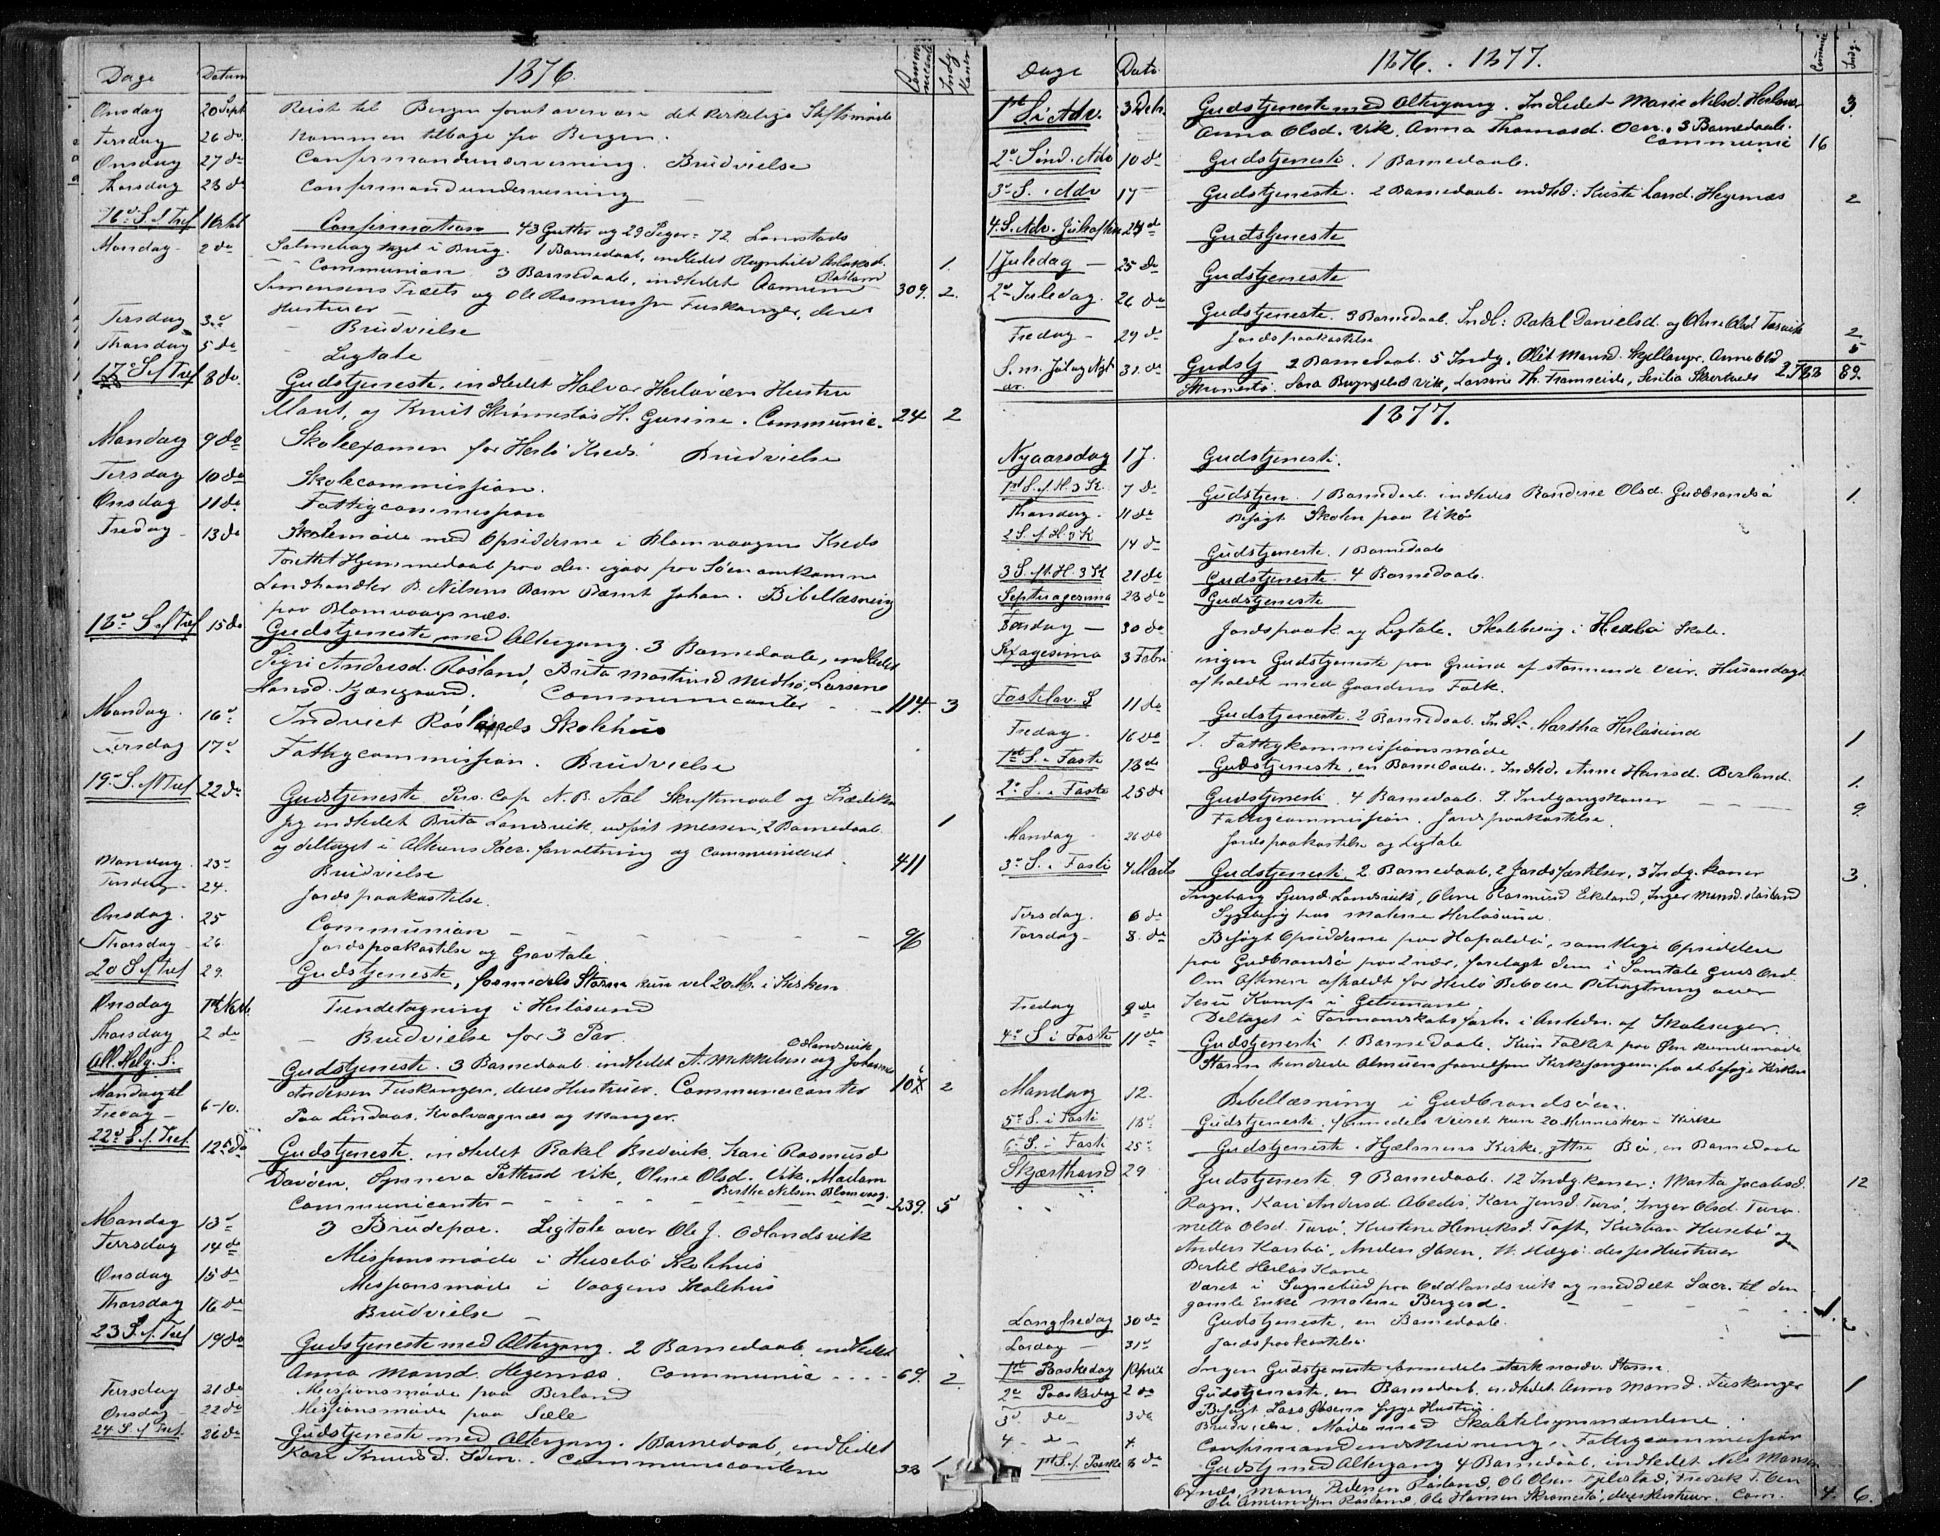 Dage Datum 1876. Communicant Indg. Koner
Onsdag 20 Sept Reist til Bergen for at overvære det kirkelige Stiftsmøde
Tirsdag 26 do Kommen tilbage fra Bergen.
Onsdag 27 do Confirmandundervisning. Brudvielse
Thorsdag 28 do Confirmandundervisning
16de S. f. Tref 1 Octbr Confirmation 43 Gutter og 29 Piger = 72. Landstads
Salmebog taget i Brug. 1 Barnedaab, indledet Ragnhild Aslaksd. Røsland 1.
Mandag 2 do Communion. 3 Barnedaab, indledet
Simensens Træets og Ole Rasmussen Fuskanger, deres 309. 2.
Hustruer
Tirsdag 3de Brudvielse
Thorsdag 5 do Ligtale
17de S. f. Tref 8 do Gudstjeneste. indledet Halvor Herløværs Hustru
Marit, og Knut Skrømestøs H. Gurine. Communic. 24 2
Mandag 9 do Skoleexamen for Herlø Kreds. Brudvielse
Tirsdag 10 do Skolecommission.
Onsdag 11 do Fattigcommission
Fredag 13 do Skolemøde med Opsidderne i Blomvaagens Kreds
Forettet Hjemmedaab paa den igaar fra Søen ankomne
Landhandler B. Nilsens Barn Johan. Bibellæsning
paa Blomvaagnæs.
18de S. f. Tref 15 do Gudstjeneste med Altergang. 3 Barnedaab, indledet
Sigri Andersd. Røsland, Brita Martinsd Midtbø, Larsine
Hansd. Kjærgaard. Communicanter 114. 3
Mandag. 16de Indviet Røslands Skolehus
Tirsdag 17de Fattigcommission. Brudvielse
19de S. f. Tref 22 do Gudstjeneste Pers. Cap. N. B. Aal Skriftemaal og Prædiken
Jeg indledet Brita Landsvik, udført Messen, 2 Barnedaab. 1
og deltaget i Alterens Sacr. forvaltning og communiceret. 411
Mandag 23de Brudvielse
Tirsdag 24. Jordspaakastelse.
Onsdag. 25 Communion 96
Thorsdag 26. Jordspaakastelse og Gravtale.
20 S. f. Tref 29. Gudstjeneste, formedels Storm kun vel 20 M. i Kirken
Onsdag 1st Novb. Tiendetagning i Herløsund
Thorsdag 2 do Brudvielse for 3 Par.
All. Helg. S. Gudstjeneste. 3 Barnedaab. indledet A. Mikkelsen Odlandsvik og Johannes
Andersen Fuskanger, deres Hustruer. Communicanter 107 2
Mandag til
Fredag 6-10. Paa Lindaas, Kvalvaagnæs og Manger.
22de S. f. Tref. 12 do Gudstjeneste. indledet Rakel Bredvik. Kari Rasmusd
Davøen, Synneva Pettersd Vik, Oline Olsd. Vik. Madam
Berthe Nilsen Blomvaag.
Communicanter 239. 5
Mandag 13de 3 Brudepar. Ligtale over Ole J. Odlandsvik
Tirsdag 14 do Missionsmøde i Husebø Skolehus
Onsdag 15 do Missionsmøde i Vaagens Skolehus
Thorsdag 16 do Brudvielse
23 S. f. Tref 19 do Gudstjeneste med Altergang. 2 Barnedaab. indledet
Anna Monsd. Hegernæs. Communic. 69. 2.
Tirsdag 21 do Missionsmøde paa Berland
Onsdag 22 do Missionsmøde paa Sæle
24 S. f. Tref. 26 do Gudstjeneste med Altergang. 1 Barnedaab, indledet
Kari Knudsd. Communicantern 33 1
Dage Dato 1876. 1877. Commnic Indg.
1st S. i Adv. 3 Decbr. Gudstjeneste med Altergang. Indledet Marie Nilsd. Herløvær 3.
Anna Olsd. Vik, Anna Thomasd. Oen. 3 Barnedaab.
Communic 16
2de Sønd. Adv 10 do Gudstjeneste. 1 Barnedaab.
3de S. i Adv 17 Gudstjeneste. 2 Barnedaab. indled: Kirsti Larsd. Hegernæs 2
4. S. Adv. Juleaften 24 do Gudstjeneste
1 Juledag 25 do Gudstjeneste
2de Juledag. 26 do Gudstjeneste. 3 Barnedaab. Indl: Rakel Danielsd. og Oline Olsd Torsvik 2
Fredag 29 do Jordspaakastelse 5
S. m. Jul og Nyt- 31. do Gudstj. 2 Barnedaab. 5 Indg. Olit Monsd. Skjellanger, Anne Old
aar Skrømestø. Sara Brynjelsd Vik, Larsine Th. Framseide, Sesilia Skærtveds 2783 89.
1877.
Nyaarsdag 1 J. Gudstjeneste.
1st S. f. H. 3 K. 7 do Gudstjen. 1 Barnedaab. indledes Randine Olsd. Gudbrandsø 1.
Thorsdag. 11 do Besøgt Skolen paa Vikø
2 S. f. H. 3 K 14 do Gudstjeneste. 1 Barnedaab
3 S. f. H. 3 K 21 do Gudstjeneste. 4 Barnedaab.
Septuagesima 28 do Gudstjeneste
Tirsdag 30 do Jordspaak. og Ligtale. Skolebesøg i Herlø Skole.
Sexagesima 3 Febr ingen Gudstjeneste paa Grund af stormende Veir. Husandagt
afholdt med Gaardens Folk.
Fastelav. S 11 do Gudstjeneste. 2 Barnedaab. Indl: Martha Herløsund
Fredag. 16 do Fattigkommissionsmøde 1
1st S. i Faste 18 do Gudstjeneste, en Barnedaab. Indled. Anne Hansd. Berland. 1.
2de S. i Faste 25 do Gudstjeneste. 4 Barnedaab. 9. Indgangskoner 9.
Fattigcommission. Jordspaakastelse.
Mandag 26 do Jordspaakastelse og Ligtale
3de S. i Faste 4 Marts Gudstjeneste. 2 Barnedaab, 2 Jordsfæstelser, 3 Indg. koner 3.
Ingeborg Sjursd Landsvik, Oline Rasmusd Ekeland, Inger Monsd. Røsland
Tirsdag. 6 do Sygebesøg hos Malene Herløsund.
Torsdag 8. do Besøgt Opsidderne paa Hopalsø, samtlige Opsiddere
paa Gudbrandsø paa 2 nær, forelagt dem i Samtale Guds Ord.
Om Aftenen afholdt for Herlø Beboere Betragtning over
Jesu Kamp i Getsemane.
Fredag 9 do Deltaget i Formandskabsforh. i Anledn. af Skolesager.
4de S i Faste 11 do Gudstjeneste 1. Barnedaab. Kun Folket paa Øen kunde møde
Storm hindrede Almuen paa Kirkesognen fra at besøge Kirken
Mandag 12. Bibellæsning i Gudbrandsøen.
5te S. i Faste 18de Gudstjeneste. formedels Veiret kun 20 Mennesker i Kirke
6te S. i Faste 25de Gudstjeneste. Hjælmens Kirke, yttre Bø, en Barnedaab
Skjærthorsd 29 Gudstjeneste. 9 Barnedaab. 12 Indg. koner: Marta Jacobsd. 12
Rogn, Kari Andersd Abedis, Kari Jensd. Turø, Inger Olsd. Turø.
Mette Olsd. Turø, Kirstine Henriksd. Toft, Kristian Husebø og
Anders Karsbø, Anders Olsen, N. Hægø, deres Hustruer
Bertil Herløs Kone
Været i Sognebud paa Oddlandsvik og meddelt Sacr. til den
gamle Enke Malene Bergesd. 1.
Langfredag 30 do Gudstjeneste, en Barnedaab.
Lørdag 31de Jordspaakastelse
1st Paaskedag 1 April Ingen Gudstjeneste formedels stærk nordv. Storm.
2de Paaskedag 2 do Gudstjeneste, en Barnedaab, indledet Anna Monsd. Fuskanger 1
3de do 3 do Besøgt Lars Olsens syge Hustru.
Brudvielse. Møde med Skoletilsynsmændene.
4 do 4. Confirmandindskrivning. Fattigcommission
1st S. f. Paaske 8 do Gudstj med Altergang 4 Barnedaab, indledet Nils Monsen
Oxnæs, Mons Pedersen Røsland, Ole Olsen Fjelstad, Fredrik T. Oen
Ole Amundsen Røsland, Ole Hansen Skrømestø, deres Hustruer. Com. 4. 6.